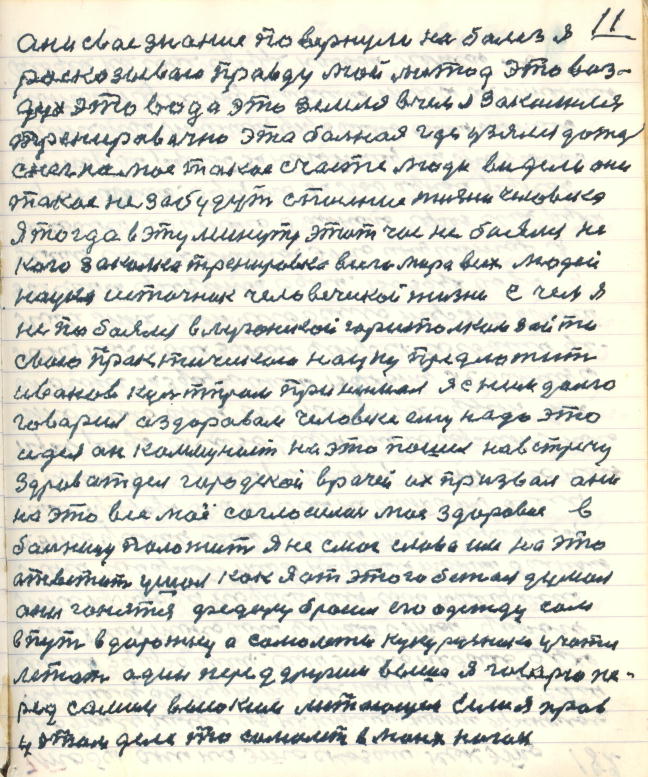 11
ани свае знание повернули на болез я
росказываю правду мой митод это воз-
дух это вода это земля в чем я закомлся
тренировачно эта болная где взяли дождь
снег на мое такое счастие люди видели они
такое не забудут спасение жизни человека
Я тогда в эту минуту этот час не боялся не
кого закалка тренировка всего мира всех людей
наука источник человеческой жизни С чем я
не побоялся в луганский гориспалком зайти
свою практическою науку предложит
иванов культпром принимал я с ним долго
говарил аздоравам человеке ему надо это
сидел он коммунист на это пошел на встречу
Здравотдел городской врачей их призвал они
на это все моё согласились мое здоровое в
болницу положит Я не смог слова им на это
атветит ушол как я от этого бежал думал
ани гонятся федору бросил его одежду сам
в путь в дорожку а самолеты кукурузники учатся
летат один перед другим выше я говарю пе-
ред самим высоким литающие Если я прав
у этом деле то самолет в моих ногах